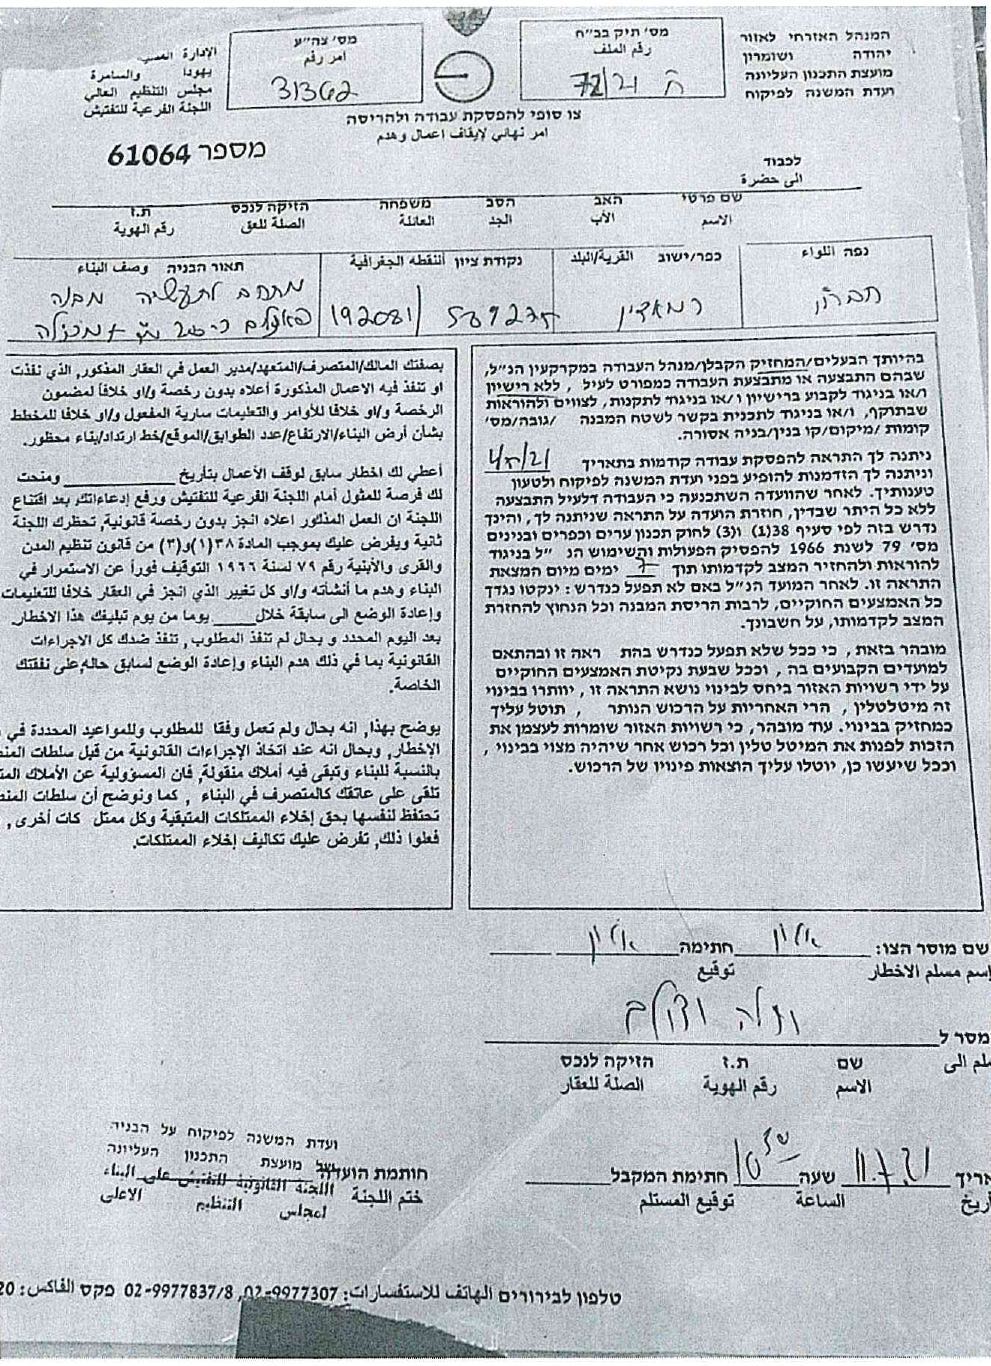 המנהל האזרחי לאזור
יהודה ושומרון
מועצת התכנון העליונה
ועדת המשנה לפיקוח
מס׳ תיק בב״ח
رقم الملف
ח 72/21
מס׳ צה״ע
امر رقم
31362
الإدارة
يهودا والسامرة
مجلس التنظيم العالي
اللجنة الفرعية للتفتيش
צו סופי להפסקת עבודה ולהריסה
امر نهائي لإيقاف اعمال وهدم
מספר 61064
לכבוד
الى حضرة
שם פרטי האב הסב משפחה הזיקה לנכס ת.ז
الاسم الأب الجد العائلة الصلة للعق رقم الهوية
نفه اللواء
חברון
כפר/ישוב القرية/البلد
רמאדין
נקודת ציון النقطه الجغرافية
192081 /
תאור הבניה وصف البناء
מתחם לתעשיה מבנה
בהיותך הבעלים/המחזיק הקבלן/מנהל העבודה במקרקעין הנ״ל,
שבהם התבצעה או מתבצעת העבודה כמפורט לעיל, ללא רישיון
ו/או בניגוד לקבוע ברישיון ו/או בניגוד לתקנות, לצווים ולהוראות
שבתוקף, ו/או בניגוד לתכנית בקשר לשטח המבנה /גובה/מס׳
קומות /מיקום/קו בנין/בניה אסורה.
ניתנה לך התראה להפסקת עבודה קודמות בתאריך
וניתנה לך הזדמנות להופיע בפני ועדת המשנה לפיקוח ולטעון
טענותיך. לאחר שהוועדה השתכנעה כי העבודה דלעיל התבצעה
ללא כל היתר שבדין, חוזרת הועדה על התראה שניתנה לך, והינך
נדרש בזה לפי סעיף 38(1) ו(3) לחוק תכנון ערים וכפרים ובנינים
מס׳ 79 לשנת 1966 להפסיק הפעולות והשימוש הנ ״ל בניגוד
להוראות ולהחזיר המצב לקדמותו תוך 7 ימים מיום המצאת
התראה זו. לאחר המועד הנ״ל באם לא תפעל כנדרש : ינקטו נגדך
כל האמצעים החוקיים, לרבות הריסת המבנה וכל הנחוץ להחזרת
המצב לקדמותו, על חשבונך.
מובהר בזאת, כי ככל שלא תפעל כנדרש בהת ראה זו ובהתאם
למועדים הקבועים בה, וככל שבעת נקיטת האמצעים החוקיים
על ידי רשויות האזור ביחס לבינוי נושא התראה זו, יוותרו בבינוי
זה מיטלטלין, הרי האחריות על הרכוש הנותר , תוטל עליך
כמחזיק בבינוי. עוד מובהר, כי רשויות האזור שומרות לעצמן את
הזכות לפנות את המיטל טלין וכל רכוש אחר שיהיה מצוי בבינוי,
וככל שיעשו כן, יוטלו עליך הוצאות פינויו של הרכוש.
بصفتك المالك/المتصرف/المتعهد/مدير العمل في العقار المذكور, الذي نفذت
او تنفذ فيه الاعمال المذكورة أعلاه بدون رخصة و/او خلافا لمضمون
الرخصة و/او خلافا للأوامر والتعليمات سارية المفعول و/او خلافا للمخطط
بشأن أرض البناء/الارتفاع/عدد الطوابق/الموقع/خط ارتداد/بناء محظور.
أعطي لك اخطار سابق لوقف الأعمال بتأريخ ____ ومنحت
لك فرصة للمثول أمام اللجنة الفرعية للتفتيش ورفع إدعاءاتك, بعد اقتناع
اللجنة ان العمل المذكور اعلاه انجز بدون رخصة قانونية, تحظرك اللجنة
ثانية ويفرض عليك بموجب المادة ٣٨(١)و(٣) من قانون تنظيم المدن
والقرى والأبنية رقم ٧٩ لسنة ١٩٦٦ التوقيف فوراً عن الاستمرار في
البناء وهدم ما أنشأته و/او كل تغيير الذي انجز في العقار خلافا للتعليمات
وإعادة الوضع الى سابقة خلال ____ يوما من يوم تبليغك هذا الاخطار
بعد اليوم المحدد و بحال لم تنفذ المطلوب, تنفذ ضدك كل الاجراءات
القانونية بما في ذلك هدم البناء وإعادة الوضع لسابق حاله, على نفقتك
الخاصة.
يوضح بهذا, انه بحال ولم تعمل وفقا للمطلوب وللمواعيد المحددة في
الاخطار, وبحال انه عند اتخاذ الإجراءات القانونية من قبل سلطات
بالنسبة للبناء وتبقى فيه أملاك منقولة, فان المسؤولية عن الأملاك
تلقى على عاتقك كالمتصرف في البناء , كما ونوضح أن سلطات
تحتفظ لنفسها بحق إخلاء الممتلكات المتبقية وكل ممتل كات أخرى,
فعلوا ذلك, تفرض عليك تكاليف إخلاء الممتلكات.
שם מוסר הצו: אילן חתימה אילן
إسم مسلم الاخطار توقيع
מסר ל
שם ת.ז הזיקה לנכס
الاسم رقم الهوية الصلة للعقار
11.7.21 שעה 10 חתימת המקבל
الساعة توقيع المستلم
חותמת הועדה
ختم اللجنة
ועדת המשנה לפיקוח על הבניה
של מועצת התכנון העליונה
اللجنة الثانوية للتفتيش على البناء
لمجلس التنظيم الاعلى
טלפון לבירורים الهاتف للاستفسارات: 02-9977307, 02-9977837/8 פקס الفاكس: